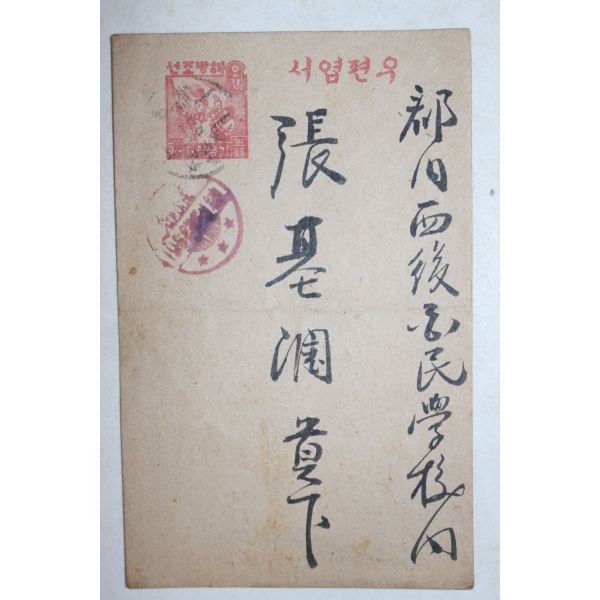 우편엽서
해방조선
郡内西後国民學校内
張基潤貴下